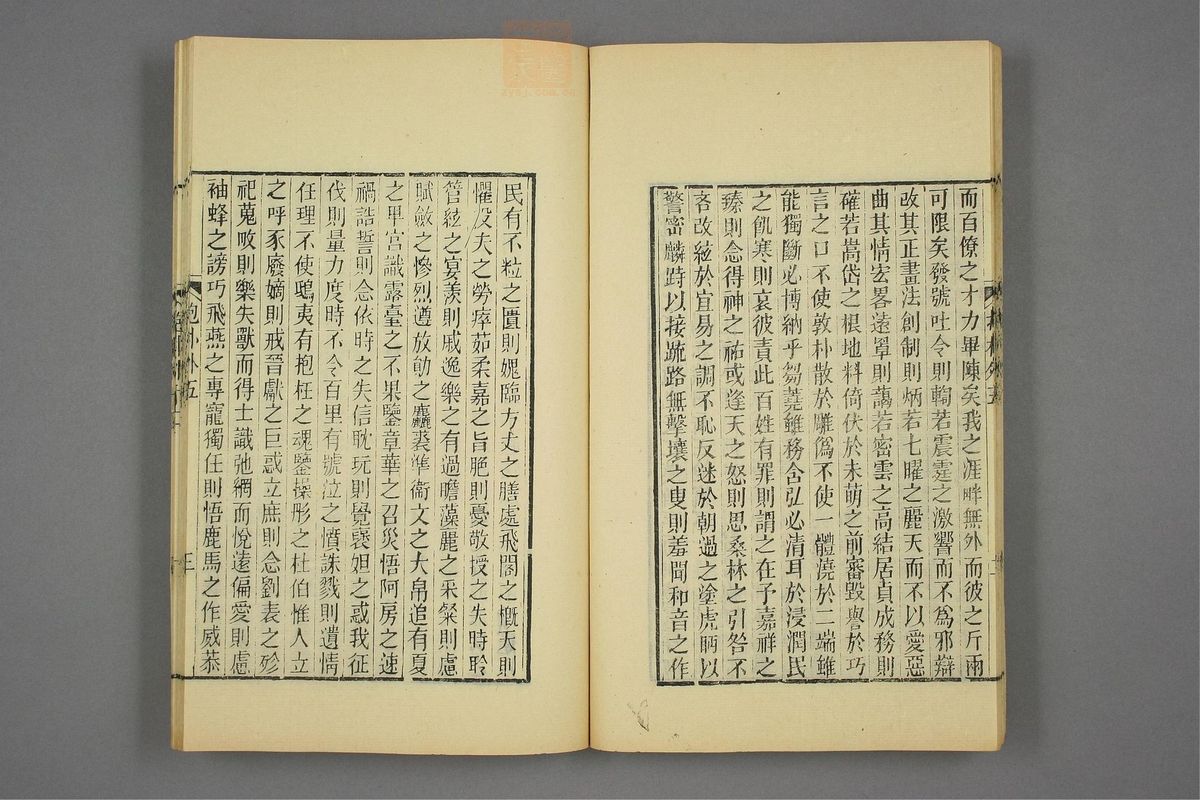 而百僚之才力畢陳矣我之涯畔無外而彼之斤兩
可限矣發號吐令則輷若震霆之激響而不爲邪辯
改其正畫法創制則炳若七曜之麗天而不以愛惡
曲其情宏畧遠罩則藹若密雲之高結居貞成務則
確若嵩岱之根地料倚伏於未萌之前審毀譽於巧
言之口不使敦朴散於雕僞不使一體澆於二端雖
能獨斷必博納乎芻蕘雖務含弘必清耳於浸潤民
之飢寒則哀彼責此百姓有罪則謂之在予嘉祥之
臻則念得神之祐或逢天之怒則思桑林之引咎不
吝改絃於宜易之調不恥反迷於朝過之塗虎眄以
警密麟跱以接疏路無擊壤之叟則羞聞和音之作
民有不粒之匱則媿臨方丈之膳處飛閣之概天則
懼役夫之勞瘁茹柔嘉之旨脆則憂敬授之失時聆
管絃之宴羨則戚逸樂之有過瞻藻麗之采粲則慮
賦斂之慘烈遵放勛之麤裘準衞文之大帛追有夏
之卑宮識露臺之不果鑒章華之召災悟阿房之速
禍誥誓則念依時之失信耽玩則覺褒妲之惑我征
伐則量力度時不令百里有號泣之憤誅戮則遺情
任理不使鴟夷有抱枉之魂鑒操彤之杜伯惟人立
之呼豕廢嫡則戒晉獻之巨惑立庶則念劉表之殄
祀蒐畋則樂失獸而得士識弛網而悅遠偏愛則慮
袖蜂之謗巧飛燕之專寵獨任則悟鹿馬之作威恭
抱朴外五
三